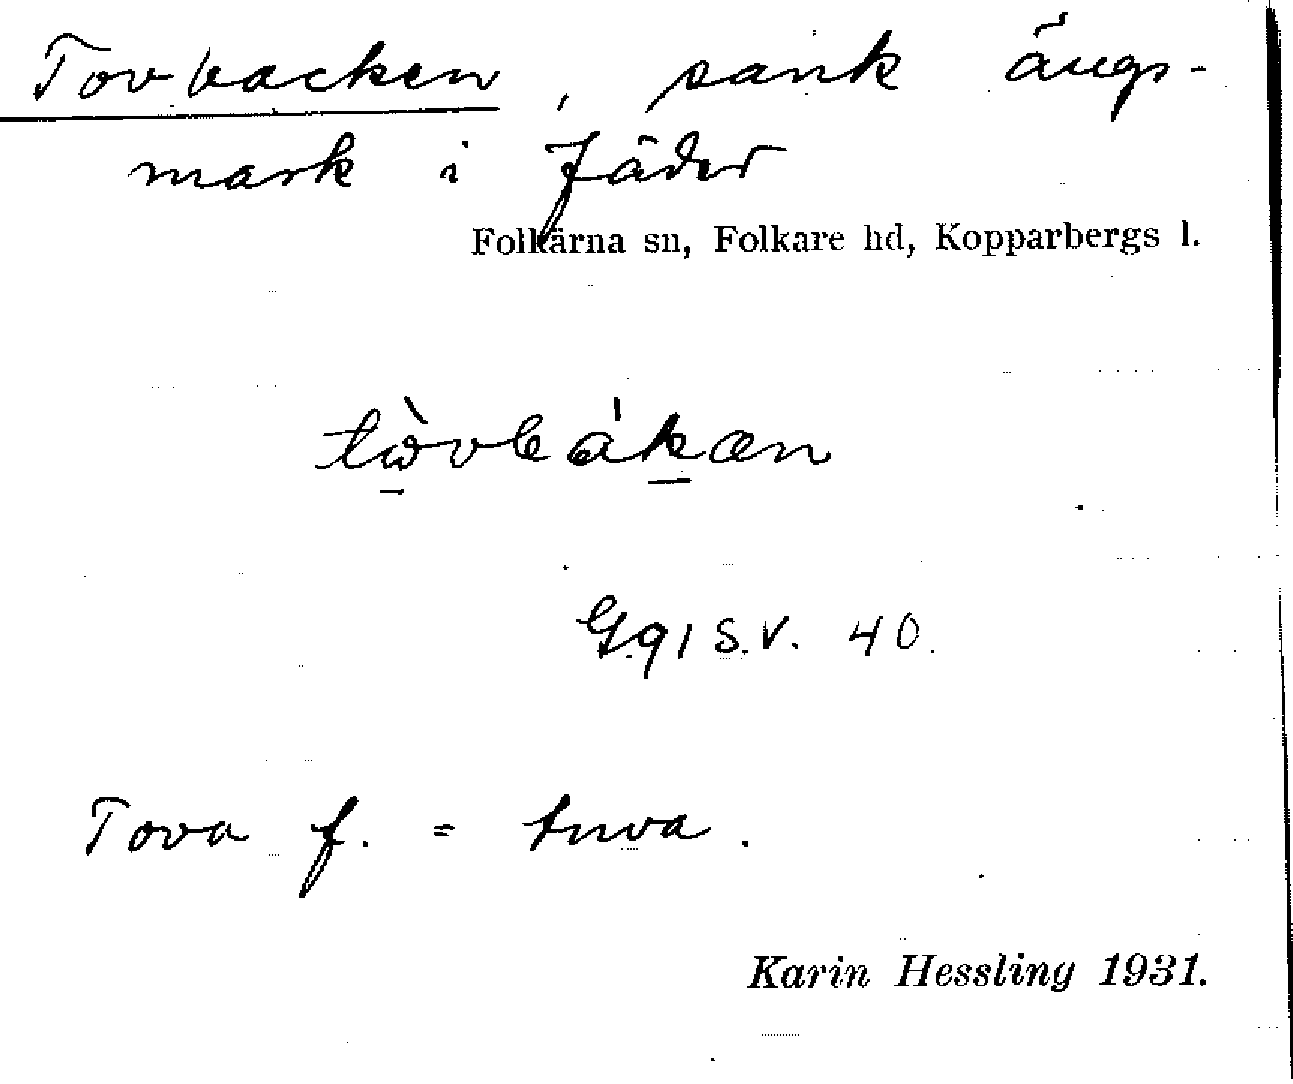 Tovbacken, sank ängs-
mark i Jäder
Folkärna sn, Folkare hd, Kopparbergs l.
tὼvbákan
Gg1 S.V. 40.
Tova f. = tuva.
Karin Hessling 1931.